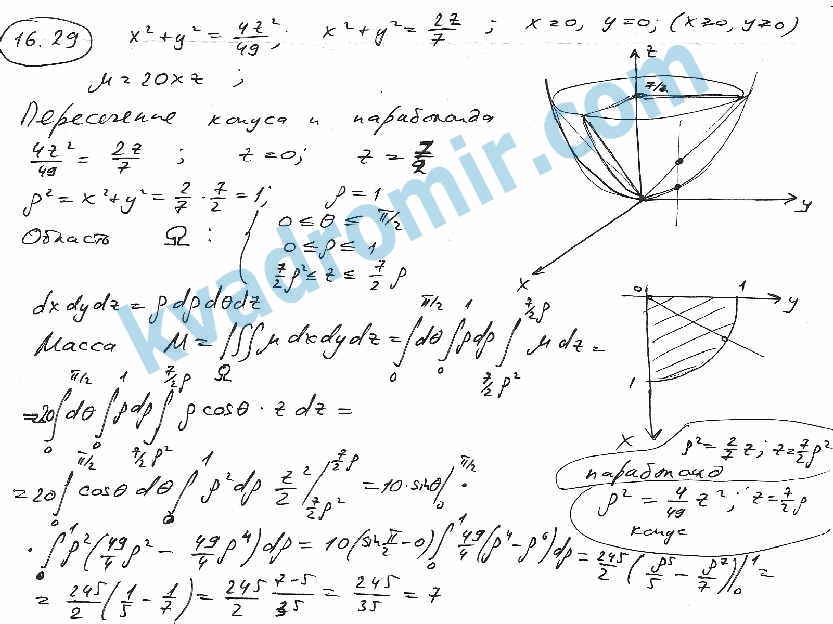 16.29 x² + y² = 4z²/49; x² + y² = 2z/7 ; x=0, y=0; (x≥0, y≥0)
μ = 20xz ;
Пересечение конуса и параболоида
4z²/49 = 2z/7 ; z=0; z = 7/2
ρ² = x² + y² = 2/7 · 7/2 = 1; ρ = 1
Область Ω : { 0 ≤ θ ≤ π/2
0 ≤ ρ ≤ 1
7/2 ρ² ≤ z ≤ 7/2 ρ
dx dy dz = ρ dρ dθ dz
Масса M = ∭_Ω μ dx dy dz = ∫_0^{π/2} dθ ∫_0^1 ρ dρ ∫_{7/2 ρ²}^{7/2 ρ} μ dz =
= 20 ∫_0^{π/2} dθ ∫_0^1 ρ dρ ∫_{7/2 ρ²}^{7/2 ρ} ρ cosθ · z dz =
= 20 ∫_0^{π/2} cosθ dθ ∫_0^1 ρ² dρ z²/2 |_{7/2 ρ²}^{7/2 ρ} = 10 · sinθ |_0^{π/2} ·
· ∫_0^1 ρ² (49/4 ρ² − 49/4 ρ⁴) dρ = 10 (sin π/2 − 0) ∫_0^1 49/4 (ρ⁴ − ρ⁶) dρ = 245/2 (ρ⁵/5 − ρ⁷/7) |_0^1 =
= 245/2 (1/5 − 1/7) = 245/2 · 7−5/35 = 245/35 = 7
z
7/2
y
x
0
1
y
1
x
ρ² = 2/7 z; z = 7/2 ρ²
параболоид
ρ² = 4/49 z²; z = 7/2 ρ
конус
kvadromir.com